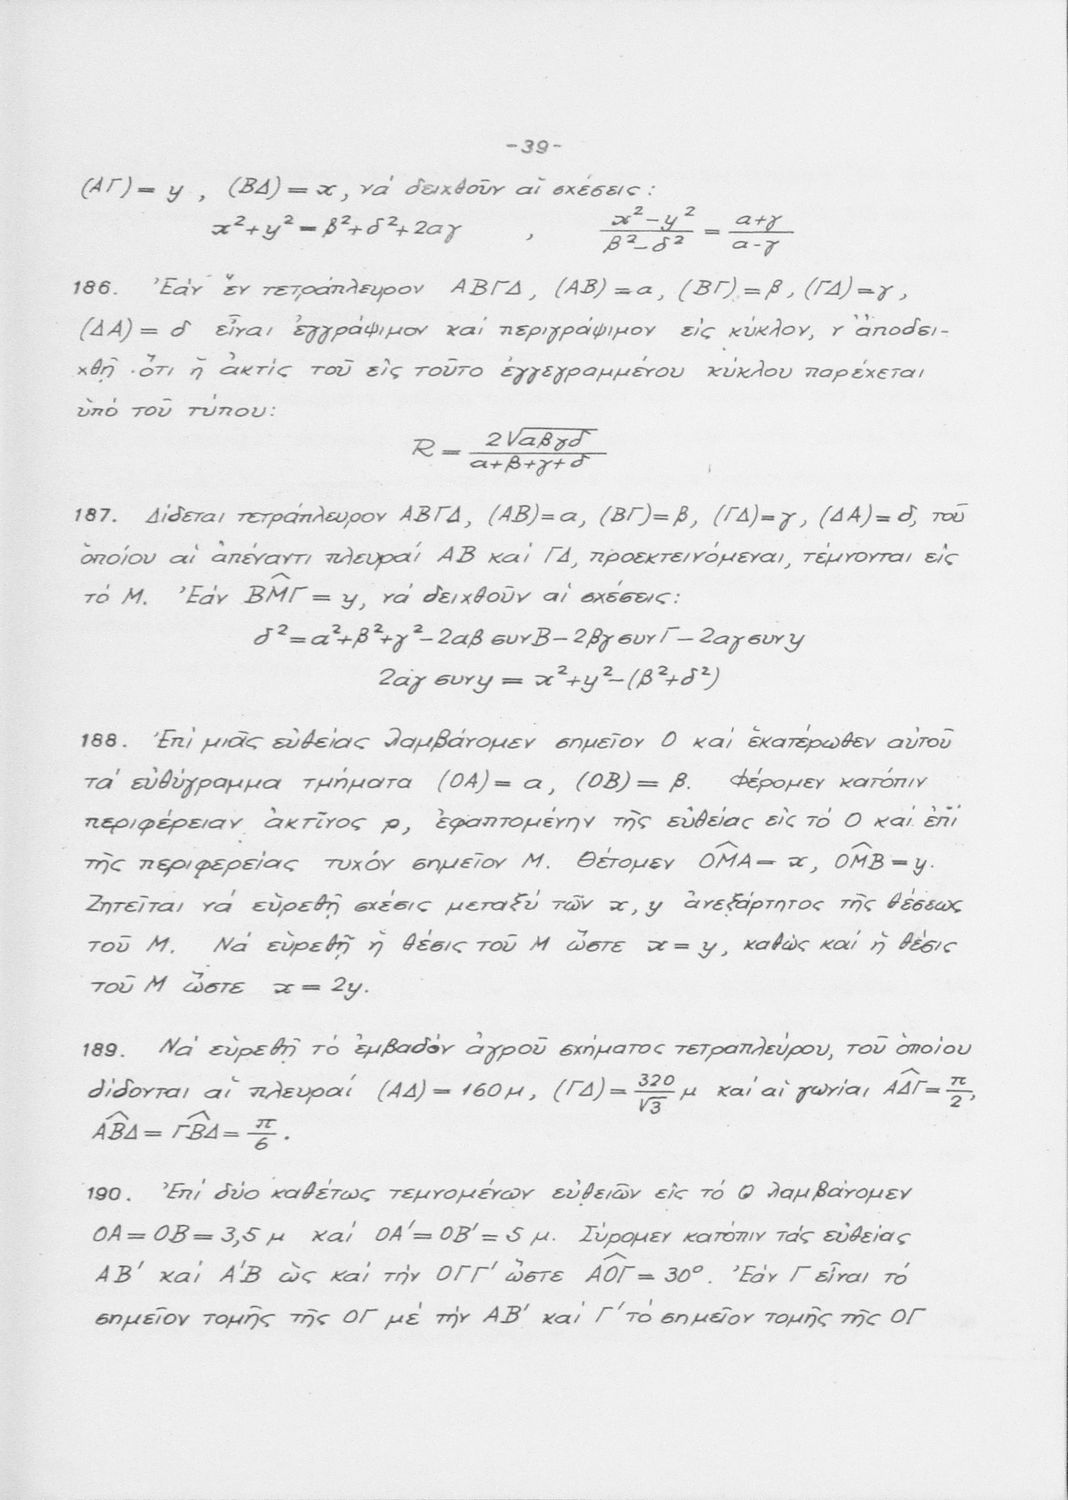 -39-
(ΑΓ) = y , (ΒΔ) = x, νά δειχθοῦν αἱ σχέσεις :
x²+y² = β²+δ²+2αγ , (x²-y²)/(β²-δ²) = (α+γ)/(α-γ)
186. Ἐάν ἕν τετράπλευρον ΑΒΓΔ, (ΑΒ) = α, (ΒΓ) = β, (ΓΔ) = γ,
(ΔΑ) = δ εἶναι ἐγγράψιμον καί περιγράψιμον εἰς κύκλον, ν' ἀποδει-
χθῇ ὅτι ἡ ἀκτίς τοῦ εἰς τοῦτο ἐγγεγραμμένου κύκλου παρέχεται
ὑπό τοῦ τύπου:
R = 2√(αβγδ)/(α+β+γ+δ)
187. Δίδεται τετράπλευρον ΑΒΓΔ, (ΑΒ)=α, (ΒΓ)=β, (ΓΔ)=γ, (ΔΑ)=δ, τοῦ
ὁποίου αἱ ἀπέναντι πλευραί ΑΒ καί ΓΔ, προεκτεινόμεναι, τέμνονται εἰς
τό Μ. Ἐάν ΒΜ̂Γ = y, νά δειχθοῦν αἱ σχέσεις:
δ²=α²+β²+γ²-2αβ συνΒ-2βγ συνΓ-2αγ συνy
2αγ συνy = x²+y²-(β²+δ²)
188. Ἐπί μιᾶς εὐθείας λαμβάνομεν σημεῖον Ο καί ἑκατέρωθεν αὐτοῦ
τά εὐθύγραμμα τμήματα (ΟΑ) = α, (ΟΒ) = β. Φέρομεν κατόπιν
περιφέρειαν ἀκτῖνος ρ, ἐφαπτομένην τῆς εὐθείας εἰς τό Ο καί ἐπί
τῆς περιφερείας τυχόν σημεῖον Μ. Θέτομεν ΟΜ̂Α = x, ΟΜ̂Β = y.
Ζητεῖται νά εὑρεθῇ σχέσις μεταξύ τῶν x, y ἀνεξάρτητος τῆς θέσεως
τοῦ Μ. Νά εὑρεθῇ ἡ θέσις τοῦ Μ ὥστε x = y, καθὼς καί ἡ θέσις
τοῦ Μ ὥστε x = 2y.
189. Νά εὑρεθῇ τό ἐμβαδόν ἀγροῦ σχήματος τετραπλεύρου, τοῦ ὁποίου
δίδονται αἱ πλευραί (ΑΔ) = 160 μ, (ΓΔ) = 320/√3 μ καί αἱ γωνίαι ΑΔ̂Γ = π/2,
ΑΒ̂Δ = ΓΒ̂Δ = π/6.
190. Ἐπί δύο καθέτως τεμνομένων εὐθειῶν εἰς τό Ο λαμβάνομεν
ΟΑ = ΟΒ = 3,5 μ καί ΟΑ' = ΟΒ' = 5 μ. Σύρομεν κατόπιν τάς εὐθείας
ΑΒ' καί Α'Β ὡς καί τήν ΟΓΓ' ὥστε ΑΟ̂Γ = 30°. Ἐάν Γ εἶναι τό
σημεῖον τομῆς τῆς ΟΓ μέ τήν ΑΒ' καί Γ' τό σημεῖον τομῆς τῆς ΟΓ